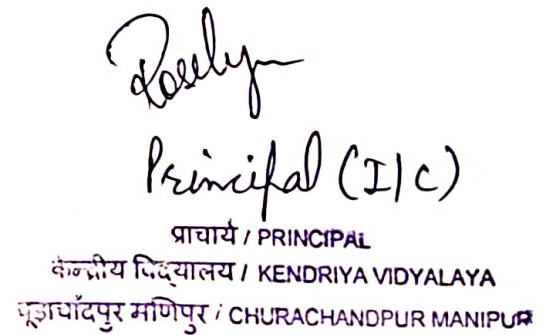 Roselyn
Principal (I/C)
प्राचार्य / PRINCIPAL
केन्द्रीय विद्यालय / KENDRIYA VIDYALAYA
चूड़ाचाँदपुर मणिपुर / CHURACHANDPUR MANIPUR